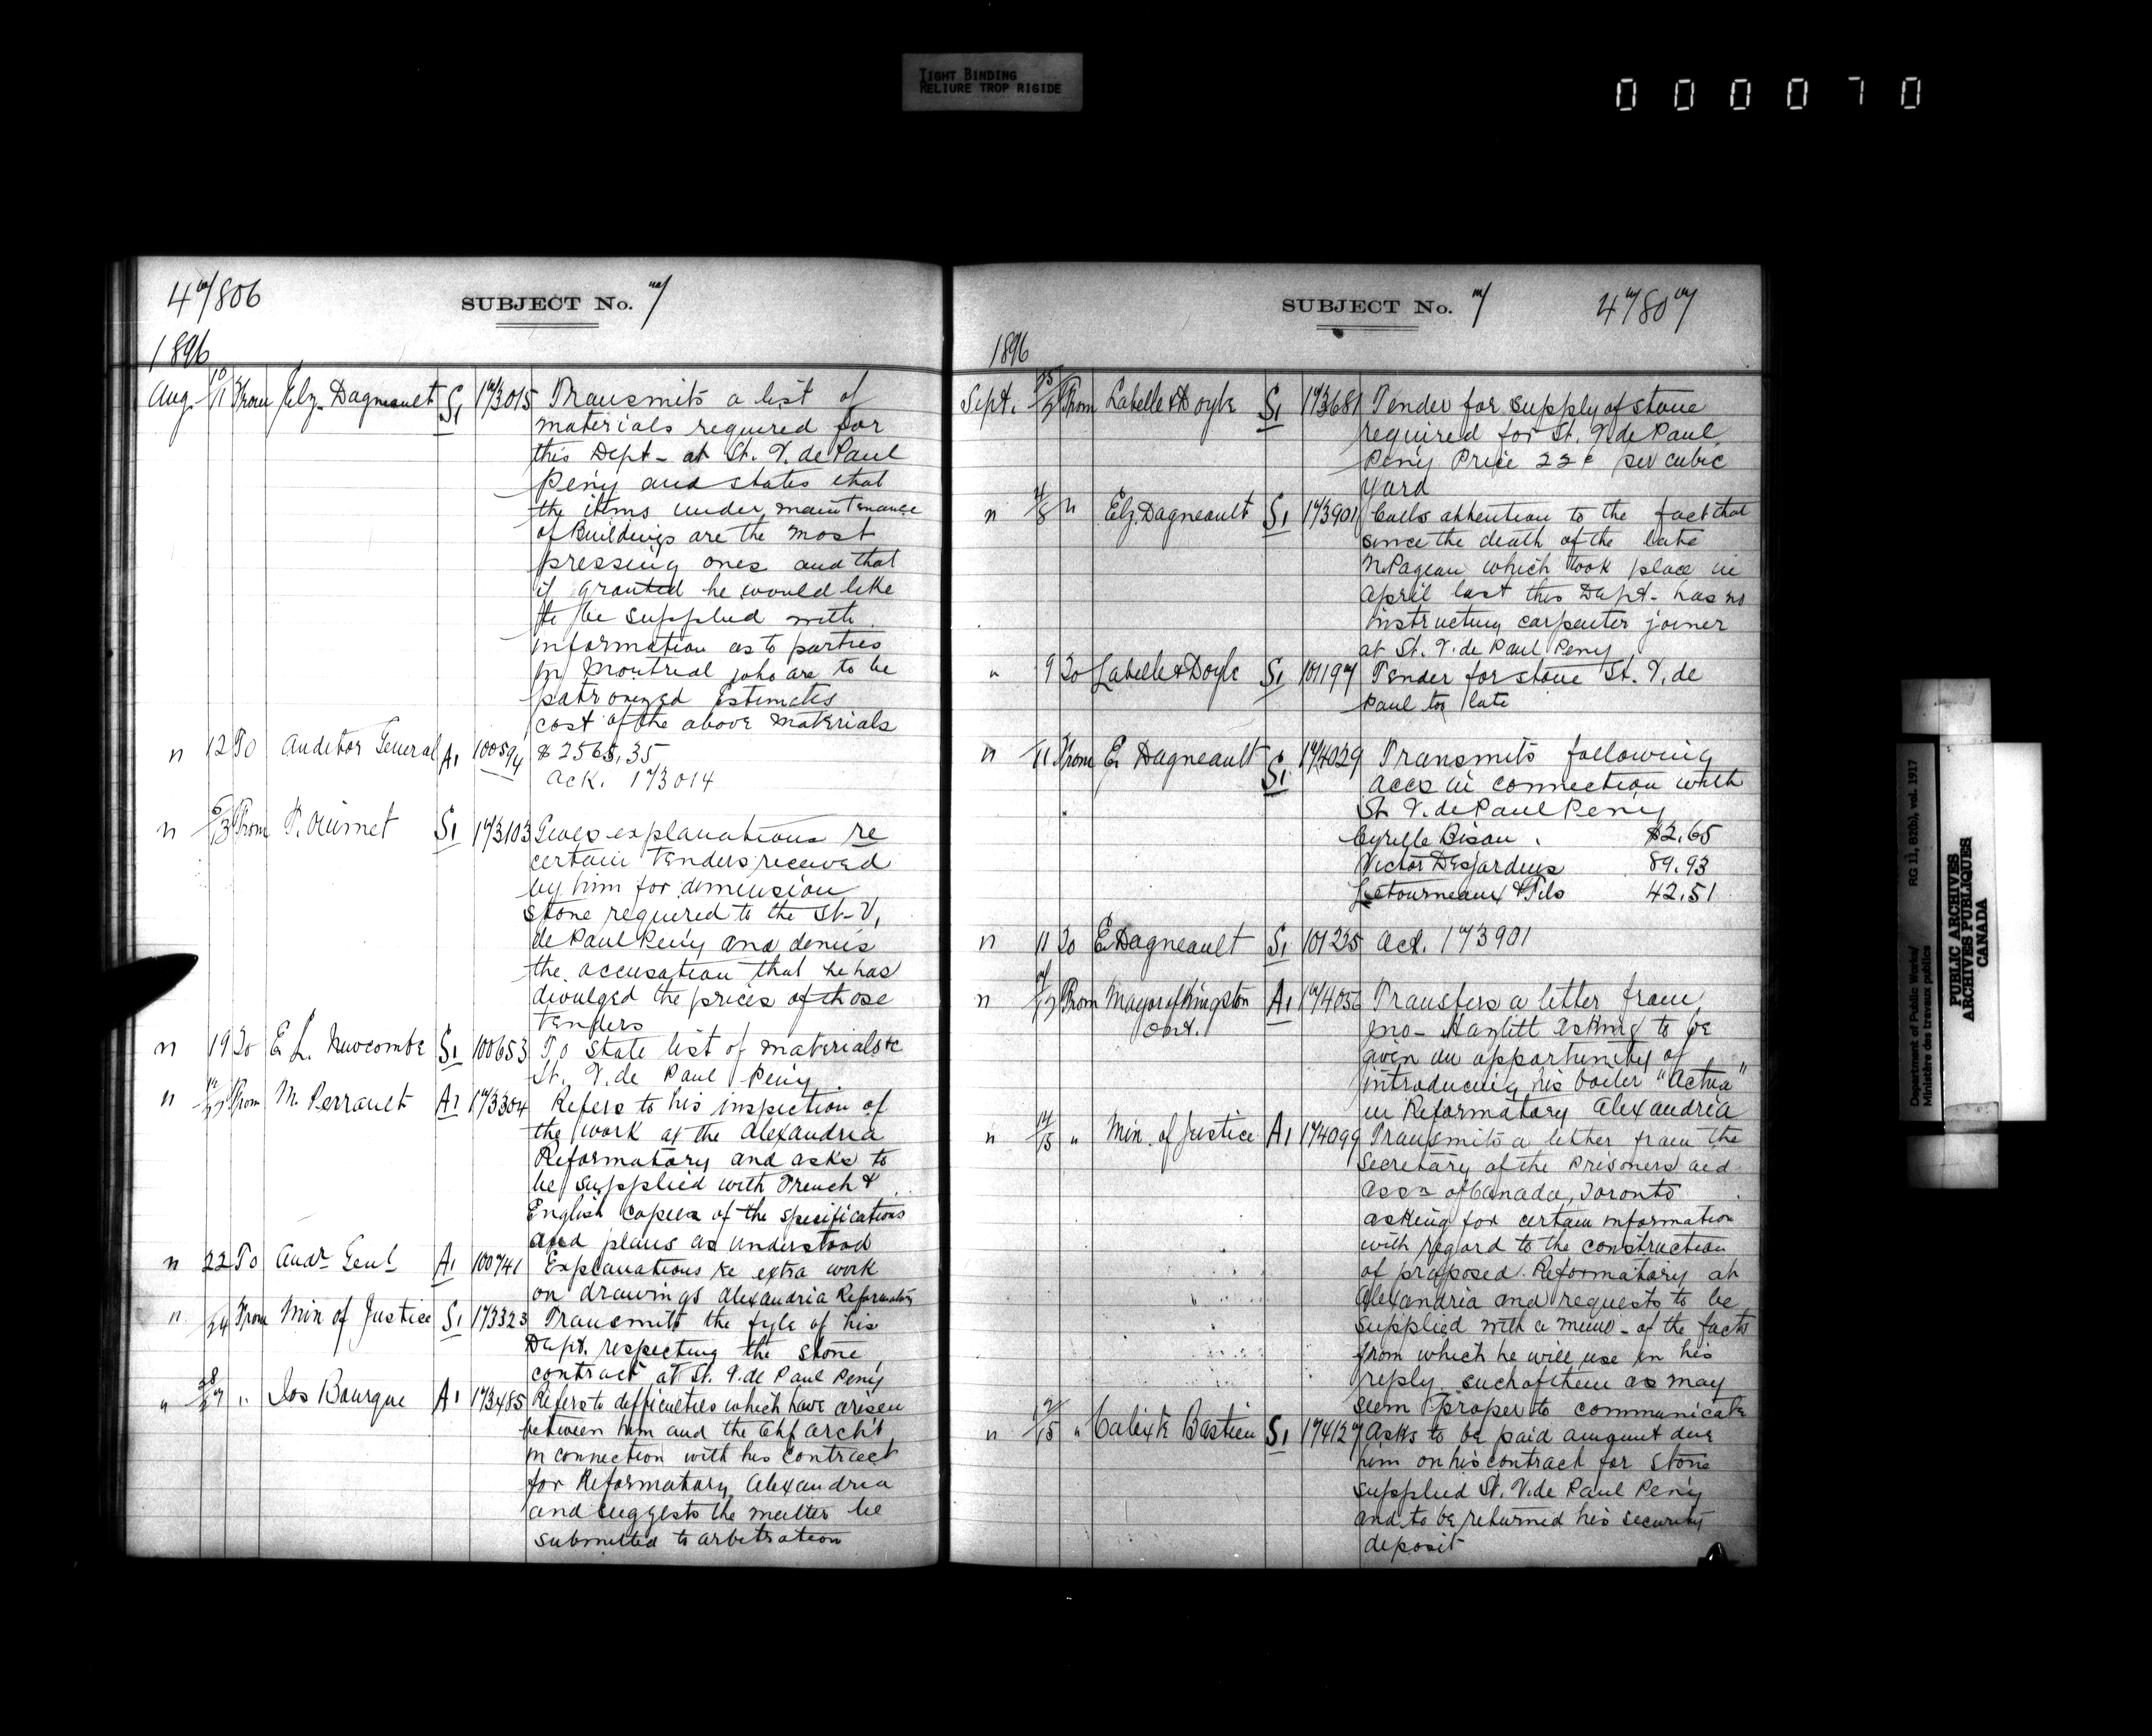 TIGHT BINDING
RELIURE TROP RIGIDE
000070
47/806
SUBJECT No. 7
1896
Aug. 10/11 From Elz. Dagneault S1 173015 Transmits a list of
materials required for
this Dept. at St. V. de Paul
Peny and states that
the items under maintenance
of Buildings are the most
pressing ones and that
if granted he would like
to be supplied with
information as to parties
in Montreal who are to be
patronized Estimates
cost of the above materials
" 12 To Auditor General A1 100594 $2565.35
Ack. 173014
" From P. Ouimet S1 173103 Gives explanations re
certain tenders received
by him for dimension
stone required to the St. V.
de Paul Peny and denies
the accusation that he has
divulged the prices of those
tenders
" 19 To E. L. Newcombe S1 100653 To state list of materials &c
St. V. de Paul Peny
" From M. Perrault A1 173304 Refers to his inspection of
the work at the Alexandria
Reformatory and asks to
be supplied with French &
English copies of the specifications
and plans as understood
" 22 To Audr Genl A1 100741 Explanations re extra work
on drawings Alexandria Reformatory
" 24 From Min of Justice S1 173323 Transmits the fyle of his
Dept. respecting the stone
contract at St. V. de Paul Peny
" " Jos Bourque A1 173485 Refers to difficulties which have arisen
between him and the Chf Archt
in connection with his contract
for Reformatory Alexandria
and suggests the matter be
submitted to arbitration
SUBJECT No. 7
47/807
1896
Sept. From Labelle & Doyle S1 173681 Tender for supply of stone
required for St. V. de Paul
Peny Price 22¢ per cubic
yard
" 4/8 " Elz. Dagneault S1 173901 Calls attention to the fact that
since the death of the late
N. Pageau which took place in
April last this Dept. has no
instructing carpenter joiner
at St. V. de Paul Peny
" 9 To Labelle & Doyle S1 101197 Tender for stone St. V. de
Paul too late
" 11 From E. Dagneault S1 174029 Transmits following
accs in connection with
St. V. de Paul Peny
Cyrille Bisau $2.65
Victor Desjardins 89.93
Letourneaux & Fils 42.51
" 11 To E. Dagneault S1 101225 Ack. 173901
" From Mayor of Kingston A1 174056 Transfers a letter from
Ont. Jno. Hazlitt asking to be
given an opportunity of
introducing his boiler "Actua"
in Reformatory Alexandria
" 14/15 " Min. of Justice A1 174099 Transmits a letter from the
Secretary of the Prisoners aid
Assn of Canada, Toronto
asking for certain information
with regard to the construction
of proposed Reformatory at
Alexandria and requests to be
supplied with a memo. of the facts
from which he will use in his
reply such of them as may
seem proper to communicate
" 12/15 " Calixte Bastien S1 174127 Asks to be paid amount due
him on his contract for stone
supplied St. V. de Paul Peny
and to be returned his security
deposit
Department of Public Works/
Ministère des travaux publics
RG 11, B2(b), vol. 1917
PUBLIC ARCHIVES
ARCHIVES PUBLIQUES
CANADA